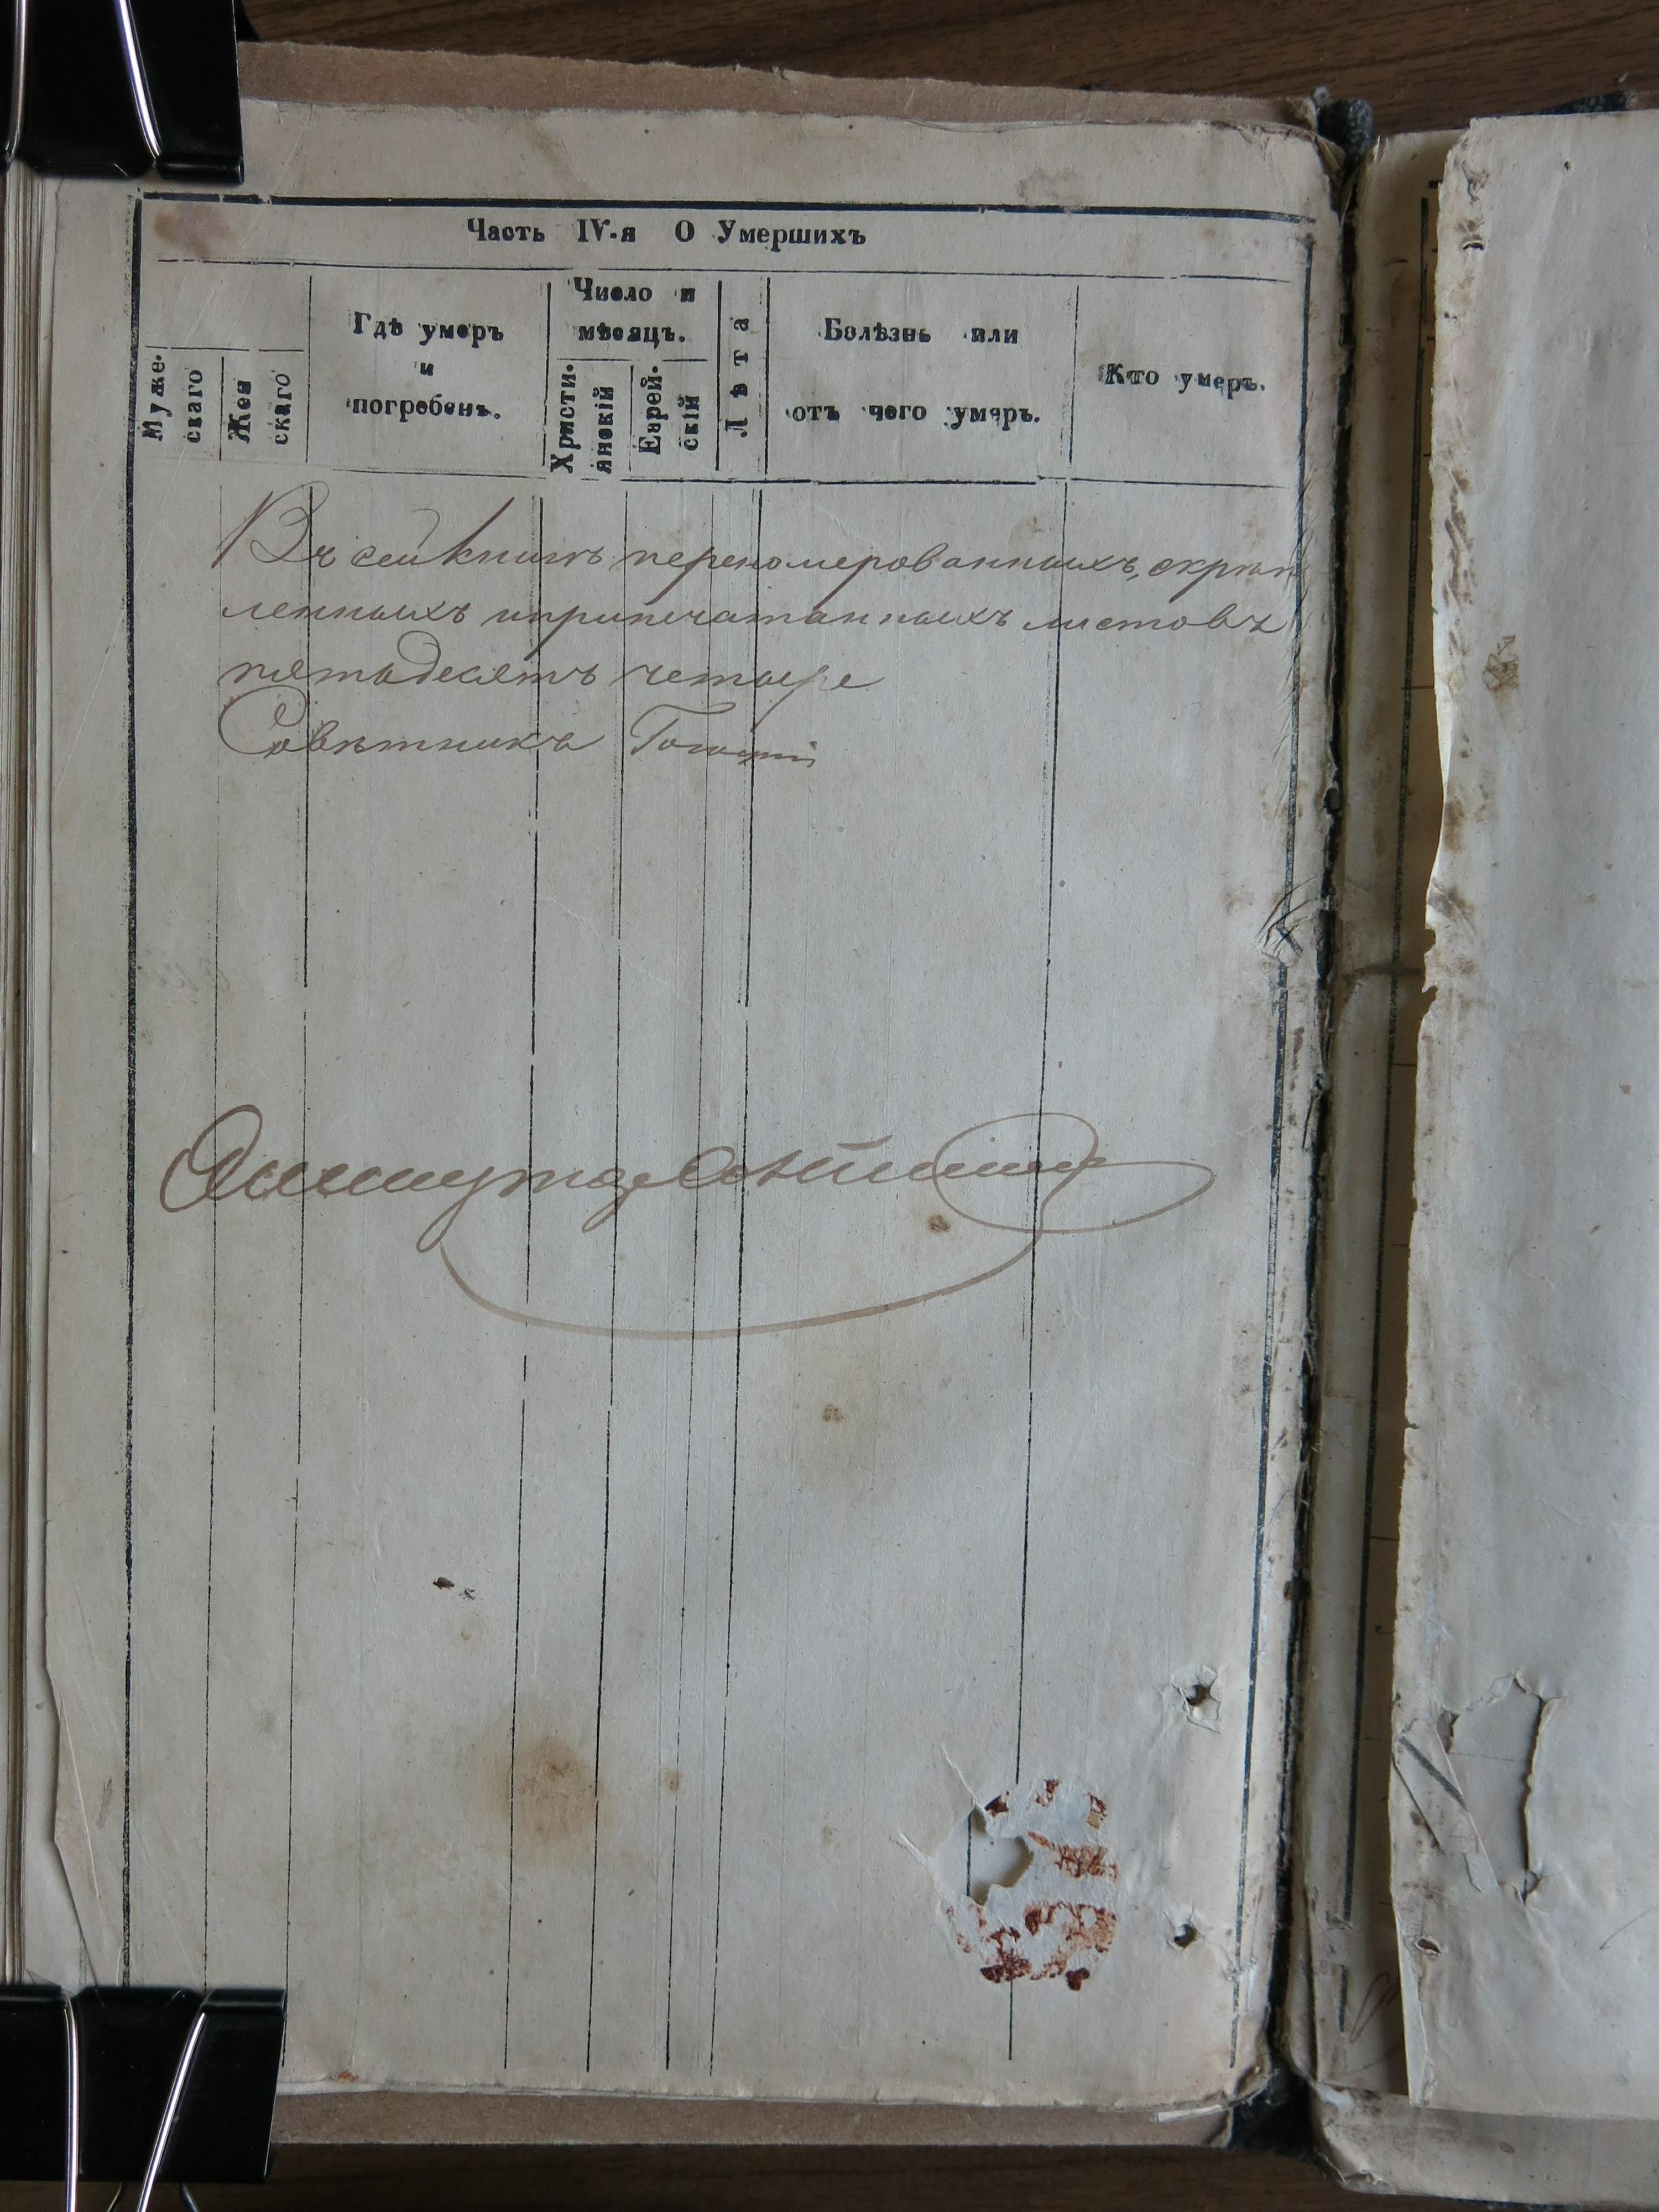 Часть IV-я О Умершихъ
Муже-
скаго
Жен
скаго
Гдѣ умеръ
и
погребенъ.
Число и
мѣсяцъ.
Христи-
янскій
Еврей-
скій
Лѣта
Болѣзнь или
отъ чего умеръ.
Кто умеръ.
Въ сей книгѣ переномерованныхъ, скрѣп
ленныхъ и припечатанныхъ листовъ
пятьдесятъ четыре
Совѣтникъ